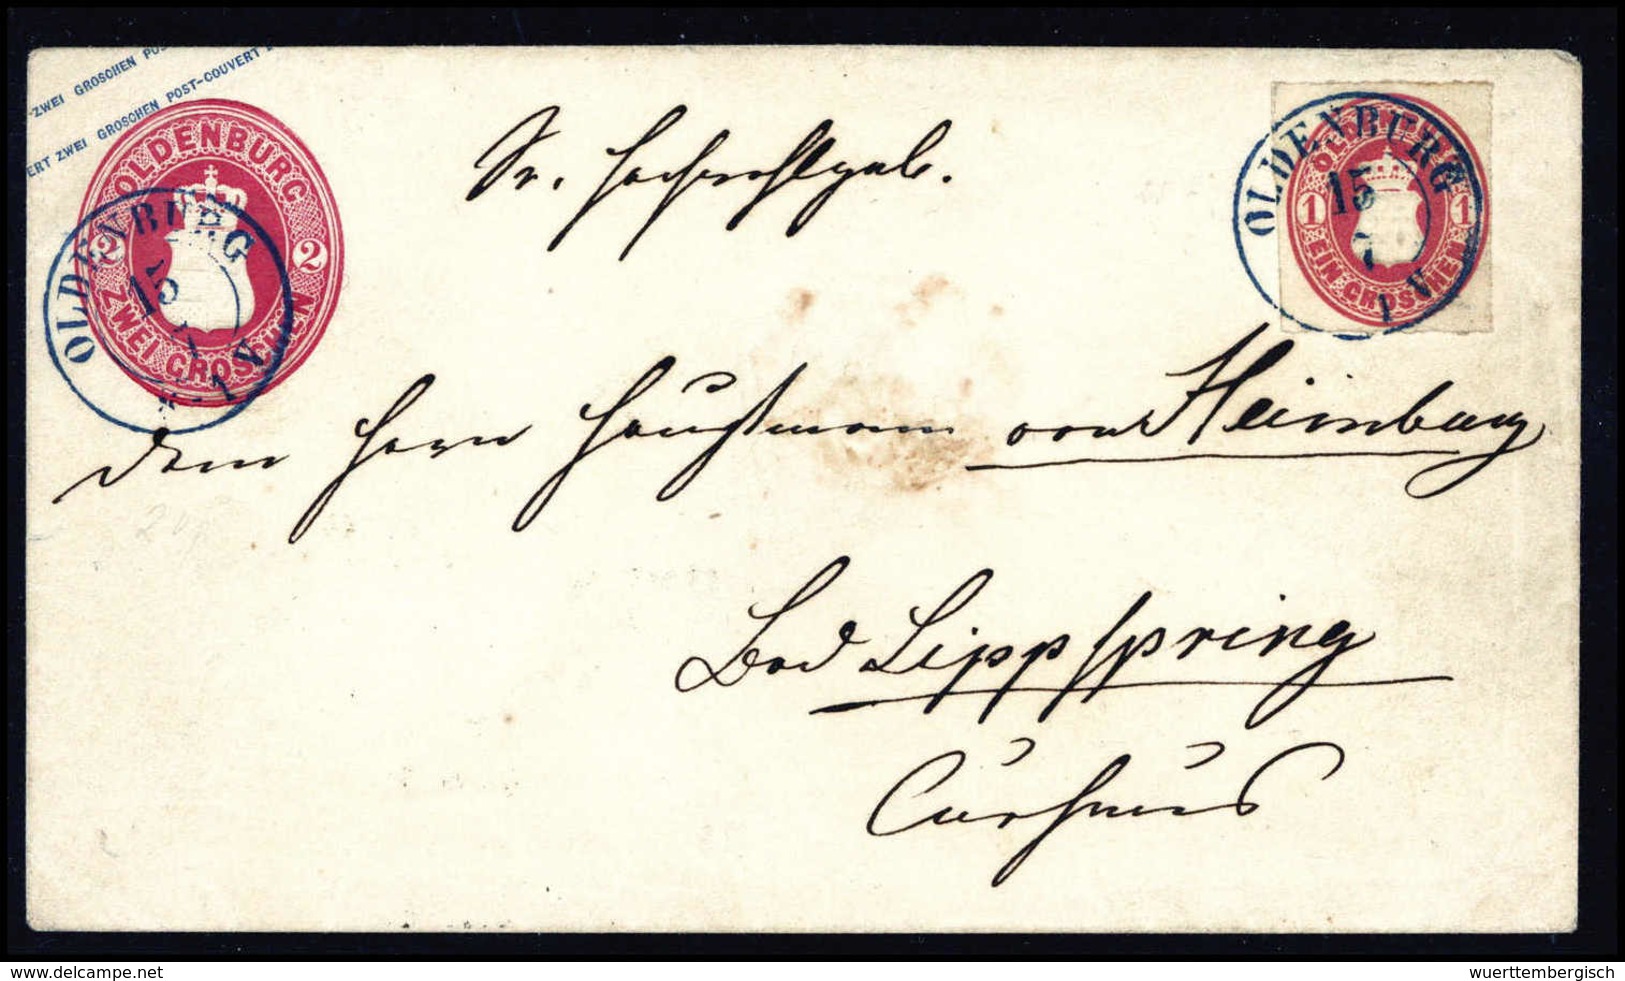 -ZWEI GROSCHEN POS
ERT ZWEI GROSCHEN POST-COUVERT
OLDENBURG
2 2
ZWEI GROSCHEN
OLDENBURG
15
1 N.
OLDENBURG
1 1
EIN GROSCHEN
OLDENBURG
15
7
1 N.
Sr. Hochwohlgeb.
dem Herrn Hauptmann von Heimburg
Bad Lippspring
Curhaus
delcampe.net
wuerttembergisch